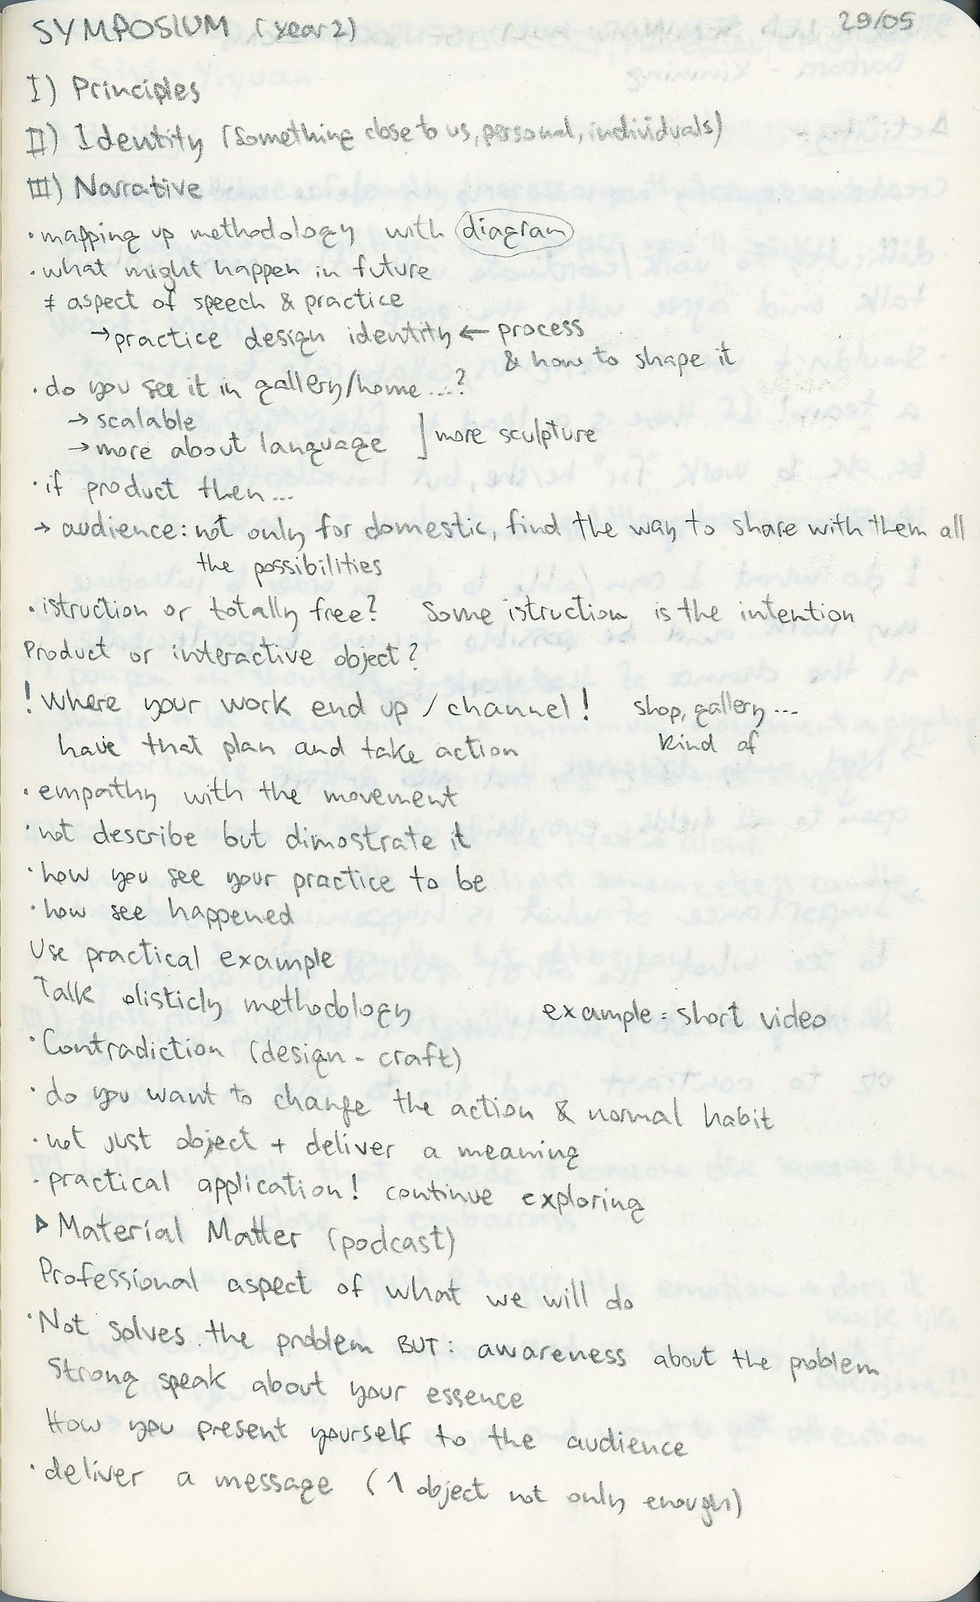 SYMPOSIUM (year 2) 29/05
I) Principles
II) Identity (Something close to us, personal, individuals)
III) Narrative
• mapping up methodology with diagram
• what might happen in future
≠ aspect of speech & practice
→ practice design identity ← process
& how to shape it
• do you see it in gallery/home...?
→ scalable
→ more about language ] more sculpture
• if product then...
→ audience: not only for domestic, find the way to share with them all
the possibilities
• istruction or totally free? Some istruction is the intention
Product or interactive object?
! Where your work end up / channel! shop, gallery...
have that plan and take action kind of
• empathy with the movement
• not describe but dimostrate it
• how you see your practice to be
• how see happened
Use practical example
Talk olisticly methodology example = short video
• Contradiction (design - craft)
• do you want to change the action & normal habit
• not just object + deliver a meaning
• practical application! continue exploring
▷ Material Matter (podcast)
Professional aspect of what we will do
• Not solves the problem BUT: awareness about the problem
Strong speak about your essence
How you present yourself to the audience
• deliver a message (1 object not only enough)